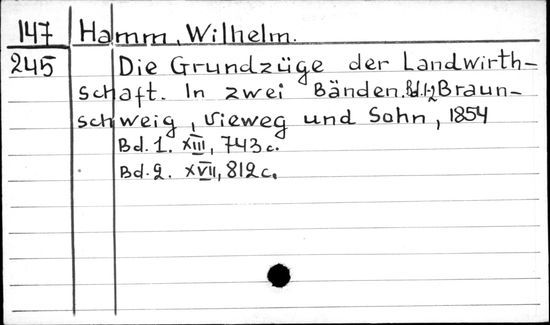 147 Hamm, Wilhelm.
245 Die Grundzüge der Landwirth-
schaft. In zwei Bänden. Bd.1-2 Braun-
schweig, Vieweg und Sohn, 1854
Bd. 1. XIII, 743 c.
Bd. 2. XVII, 812 c.